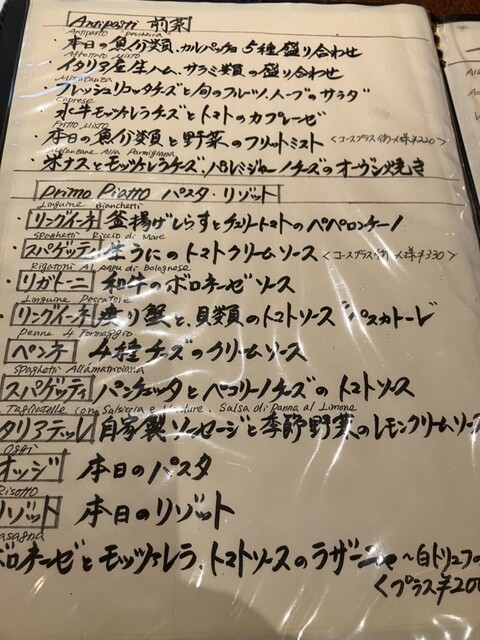 Antipasti 前菜
Antipasto pescheria
・本日の魚介類、カルパッチョ 5種盛り合わせ
Affettato Misto
・イタリア産生ハム、サラミ類の盛り合わせ
Misticanza
・フレッシュリコッタチーズと旬のフルーツ、ハーブのサラダ
Caprese
・水牛モッツァレラチーズとトマトのカプレーゼ
Fritto Misto
・本日の魚介類と野菜のフリットミスト <コースプラスお一人様¥220>
Melanzane Alla Parmigiana
・米ナスとモッツァレラチーズ、パルミジャーノチーズのオーブン焼き
Primo Piatto パスタ・リゾット
Linguine Bianchetti
・リングイーネ 釜揚げしらすとチェリートマトのペペロンチーノ
Spaghetti Riccio di Mare
・スパゲッティ 生うにのトマトクリームソース <コースプラスお一人様¥330>
Rigatoni Al ragu di Bolognese
・リガトーニ 和牛のボロネーゼソース
Linguine Pescatore
・リングイーネ 渡り蟹と、貝類のトマトソース ペスカトーレ
Penne 4 Formaggio
ペンネ 4種チーズのクリームソース
Spaghetti Allamatriciana
スパゲッティ パンチェッタとペコリーノチーズのトマトソース
Tagliatelle con Salsiccia e Verdure, Salsa di Panna al Limone
タリアテッレ 自家製ソーセージと季節野菜のレモンクリームソース
Oggi
オッジ 本日のパスタ
Risotto
リゾット 本日のリゾット
Lasagna
ボロネーゼとモッツァレラ、トマトソースのラザーニャ ~白トリュフの
<プラス¥200